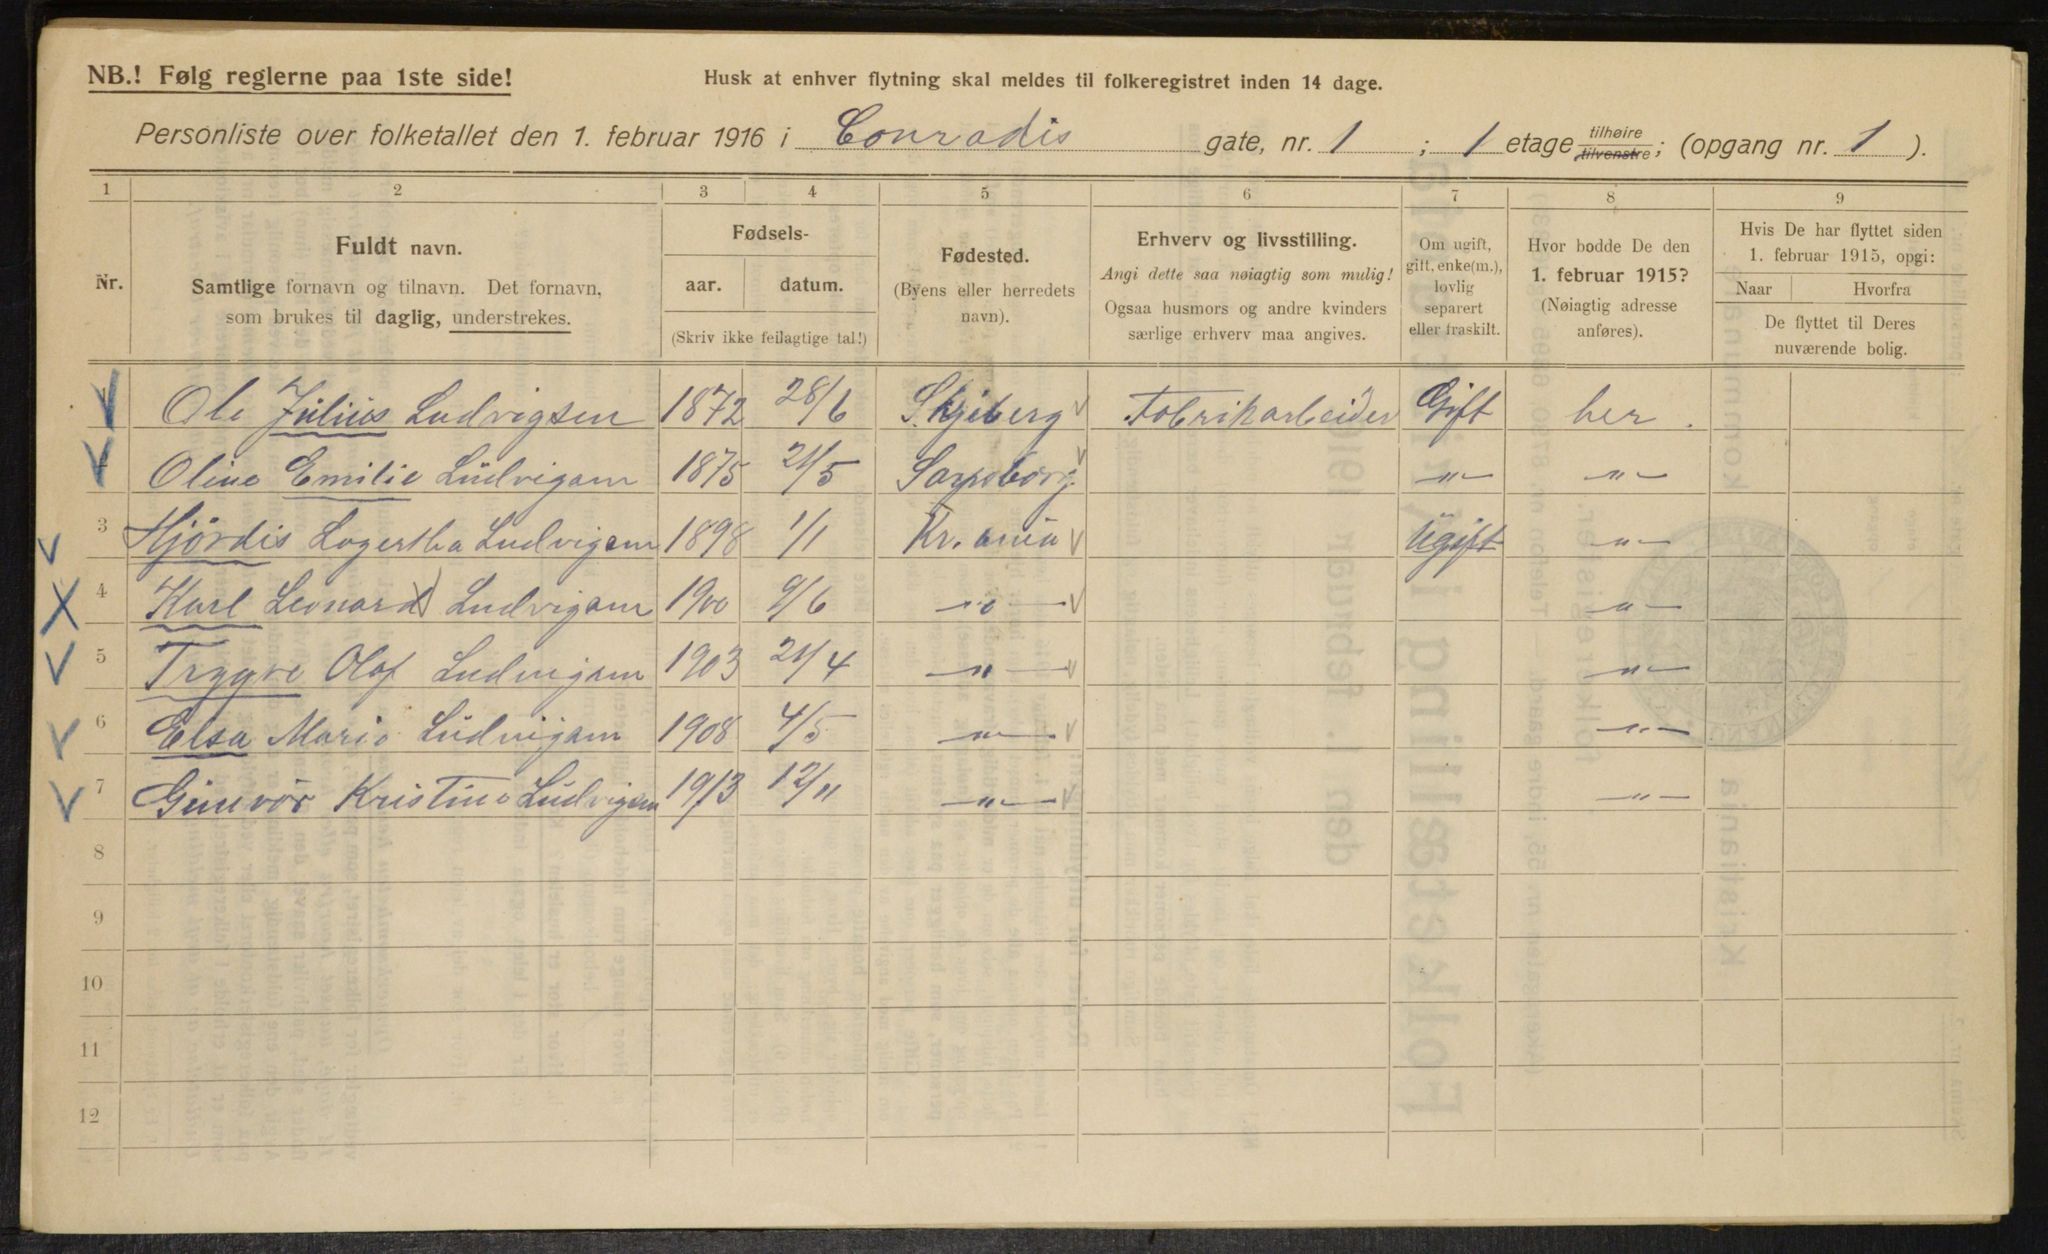 NB.! Følg reglerne paa 1ste side!
Husk at enhver flytning skal meldes til folkeregistret inden 14 dage.
Personliste over folketallet den 1. februar 1916 i Conradis gate, nr. 1 ; 1 etage tilhøire tilvenstre; (opgang nr. 1 ).
1 2 3 4 5 6 7 8 9
Nr.
Fuldt navn.
Samtlige fornavn og tilnavn. Det fornavn,
som brukes til daglig, understrekes.
Fødsels-
aar. datum.
(Skriv ikke feilagtige tal!)
Fødested.
(Byens eller herredets
navn).
Erhverv og livsstilling.
Angi dette saa nøiagtig som mulig!
Ogsaa husmors og andre kvinders
særlige erhverv maa angives.
Om ugift,
gift, enke(m.),
lovlig
separert
eller fraskilt.
Hvor bodde De den
1. februar 1915?
(Nøiagtig adresse
anføres).
Hvis De har flyttet siden
1. februar 1915, opgi:
Naar Hvorfra
De flyttet til Deres
nuværende bolig.
Ole Julius Ludvigsen 1872 28/6 Skjeberg Fabrikarbeider Gift her.
Oline Emilie Ludvigsen 1875 21/5 Sarpsborg -"- -"-
3 Hjördis Lagertha Ludvigsen 1898 1/1 Kr.ania Ugift -"-
4 Karl Leonard Ludvigsen 1900 9/6 -"- -"-
5 Trygve Olaf Ludvigsen 1903 21/4 -"- -"-
6 Elsa Marie Ludvigsen 1908 4/5 -"- -"-
7 Gunvor Kristine Ludvigsen 1913 12/11 -"- -"-
8
9
10
11
12